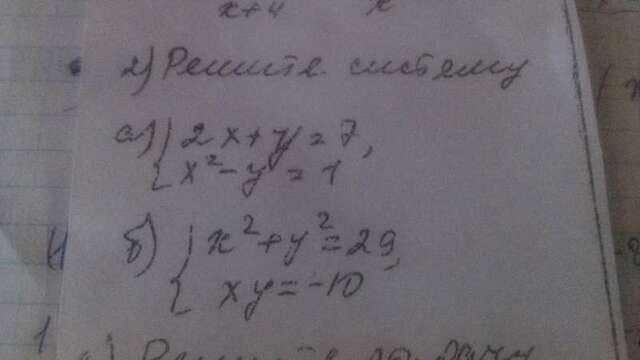 x+4 x
2) Решите систему
а) { 2x+y=7,
x²-y=1
б) { x²+y²=29,
xy=-10